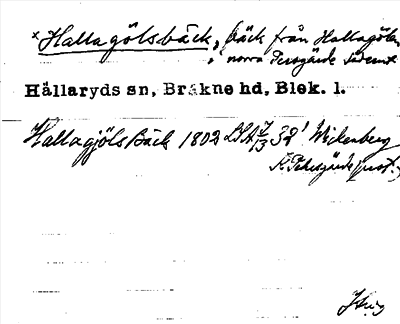 × Hallagölsbäck, bäck från Hallagölen
i norra Persgärde
Hällaryds sn, Bräkne hd, Blek. l.
Hallagjöls Bäck 1802 LSA 7/13 32' Wickenberg
K. Pehrsgärde